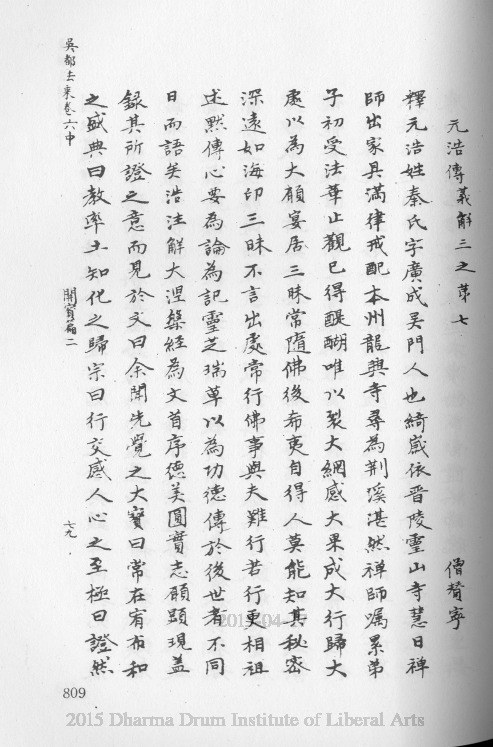 元浩傳義解三之第七
僧贊寧
釋元浩姓秦氏字廣成吴門人也綺歲依晋陵靈山寺慧日禪
師出家具滿律戒配本州龍興寺尋為荆溪湛然禪師囑累弟
子初受法華止觀已得醍醐唯以裂大網感大果成大行歸大
處以為大願宴居三昧常隨佛後希夷自得人莫能知其秘密
深遠如海印三昧不言出處常行佛事與夫難行苦行更相祖
述默傳心要為論為記靈芝瑞草以為功德傳於後世者不同
日而語矣浩注解大涅槃經為文首序德美圓實志願顯現蓋
錄其所證之意而見於文曰余聞先覺之大寶曰常在宥布和
之盛典曰教率土知化之歸宗曰行交感人心之至極曰證然
吴都法乘卷六中
開寶篇二
七九
809
2015 Dharma Drum Institute of Liberal Arts